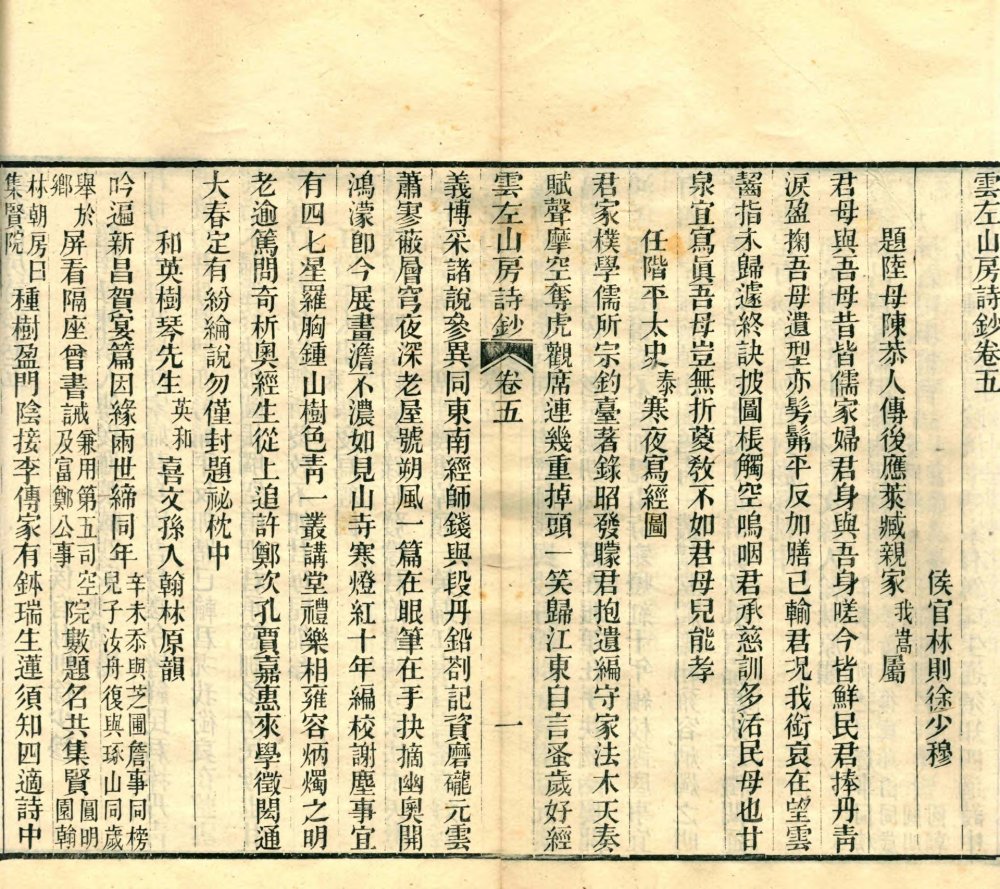 雲左山房詩鈔卷五
侯官林則徐少穆
題陸母陳恭人傳後應萊臧親家我嵩屬
君母與吾母昔皆儒家婦君身與吾身嗟今皆鮮民君捧丹靑
淚盈掬吾母遺型亦髣髴平反加膳已輸君況我銜哀在望雲
齧指未歸遽終訣披圖棖觸空嗚咽君承慈訓多活民母也甘
泉宜寫眞吾母豈無折葼敎不如君母兒能孝
任階平太史泰寒夜寫經圖
君家樸學儒所宗釣臺著錄昭發矇君抱遺編守家法木天奏
賦聲摩空奪虎觀席連幾重掉頭一笑歸江東自言蚤歲好經
雲左山房詩鈔 卷五 一
義博采諸說參異同東南經師錢與段丹鉛剳記資磨礲元雲
蕭寥蔽層穹夜深老屋號朔風一篇在眼筆在手抉摘幽奧開
鴻濛卽今展畫澹不濃如見山寺寒燈紅十年編校謝塵事宜
有四七星羅胸鍾山樹色靑一叢講堂禮樂相雍容炳燭之明
老逾篤問奇析奧經生從上追許鄭次孔賈嘉惠來學徵閎通
大春定有紛綸說勿僅封題祕枕中
和英樹琴先生英和喜文孫入翰林原韻
吟遍新昌賀宴篇因緣兩世締同年辛未忝與芝圃詹事同榜兒子汝舟復與琢山同歲
舉於鄉屏看隔座曾書誡兼用第五司空及富鄭公事院數題名共集賢圓明園翰
林朝房曰集賢院種樹盈門陰接李傳家有鉢瑞生蓮須知四適詩中